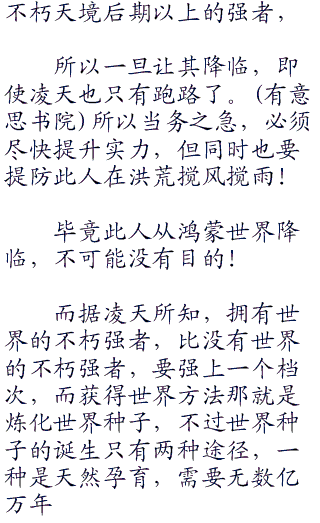 不朽天境后期以上的强者，
所以一旦让其降临，即
使凌天也只有跑路了。(有意
思书院)所以当务之急，必须
尽快提升实力，但同时也要
提防此人在洪荒搅风搅雨！
毕竟此人从鸿蒙世界降
临，不可能没有目的！
而据凌天所知，拥有世
界的不朽强者，比没有世界
的不朽强者，要强上一个档
次，而获得世界方法那就是
炼化世界种子，不过世界种
子的诞生只有两种途径，一
种是天然孕育，需要无数亿
万年